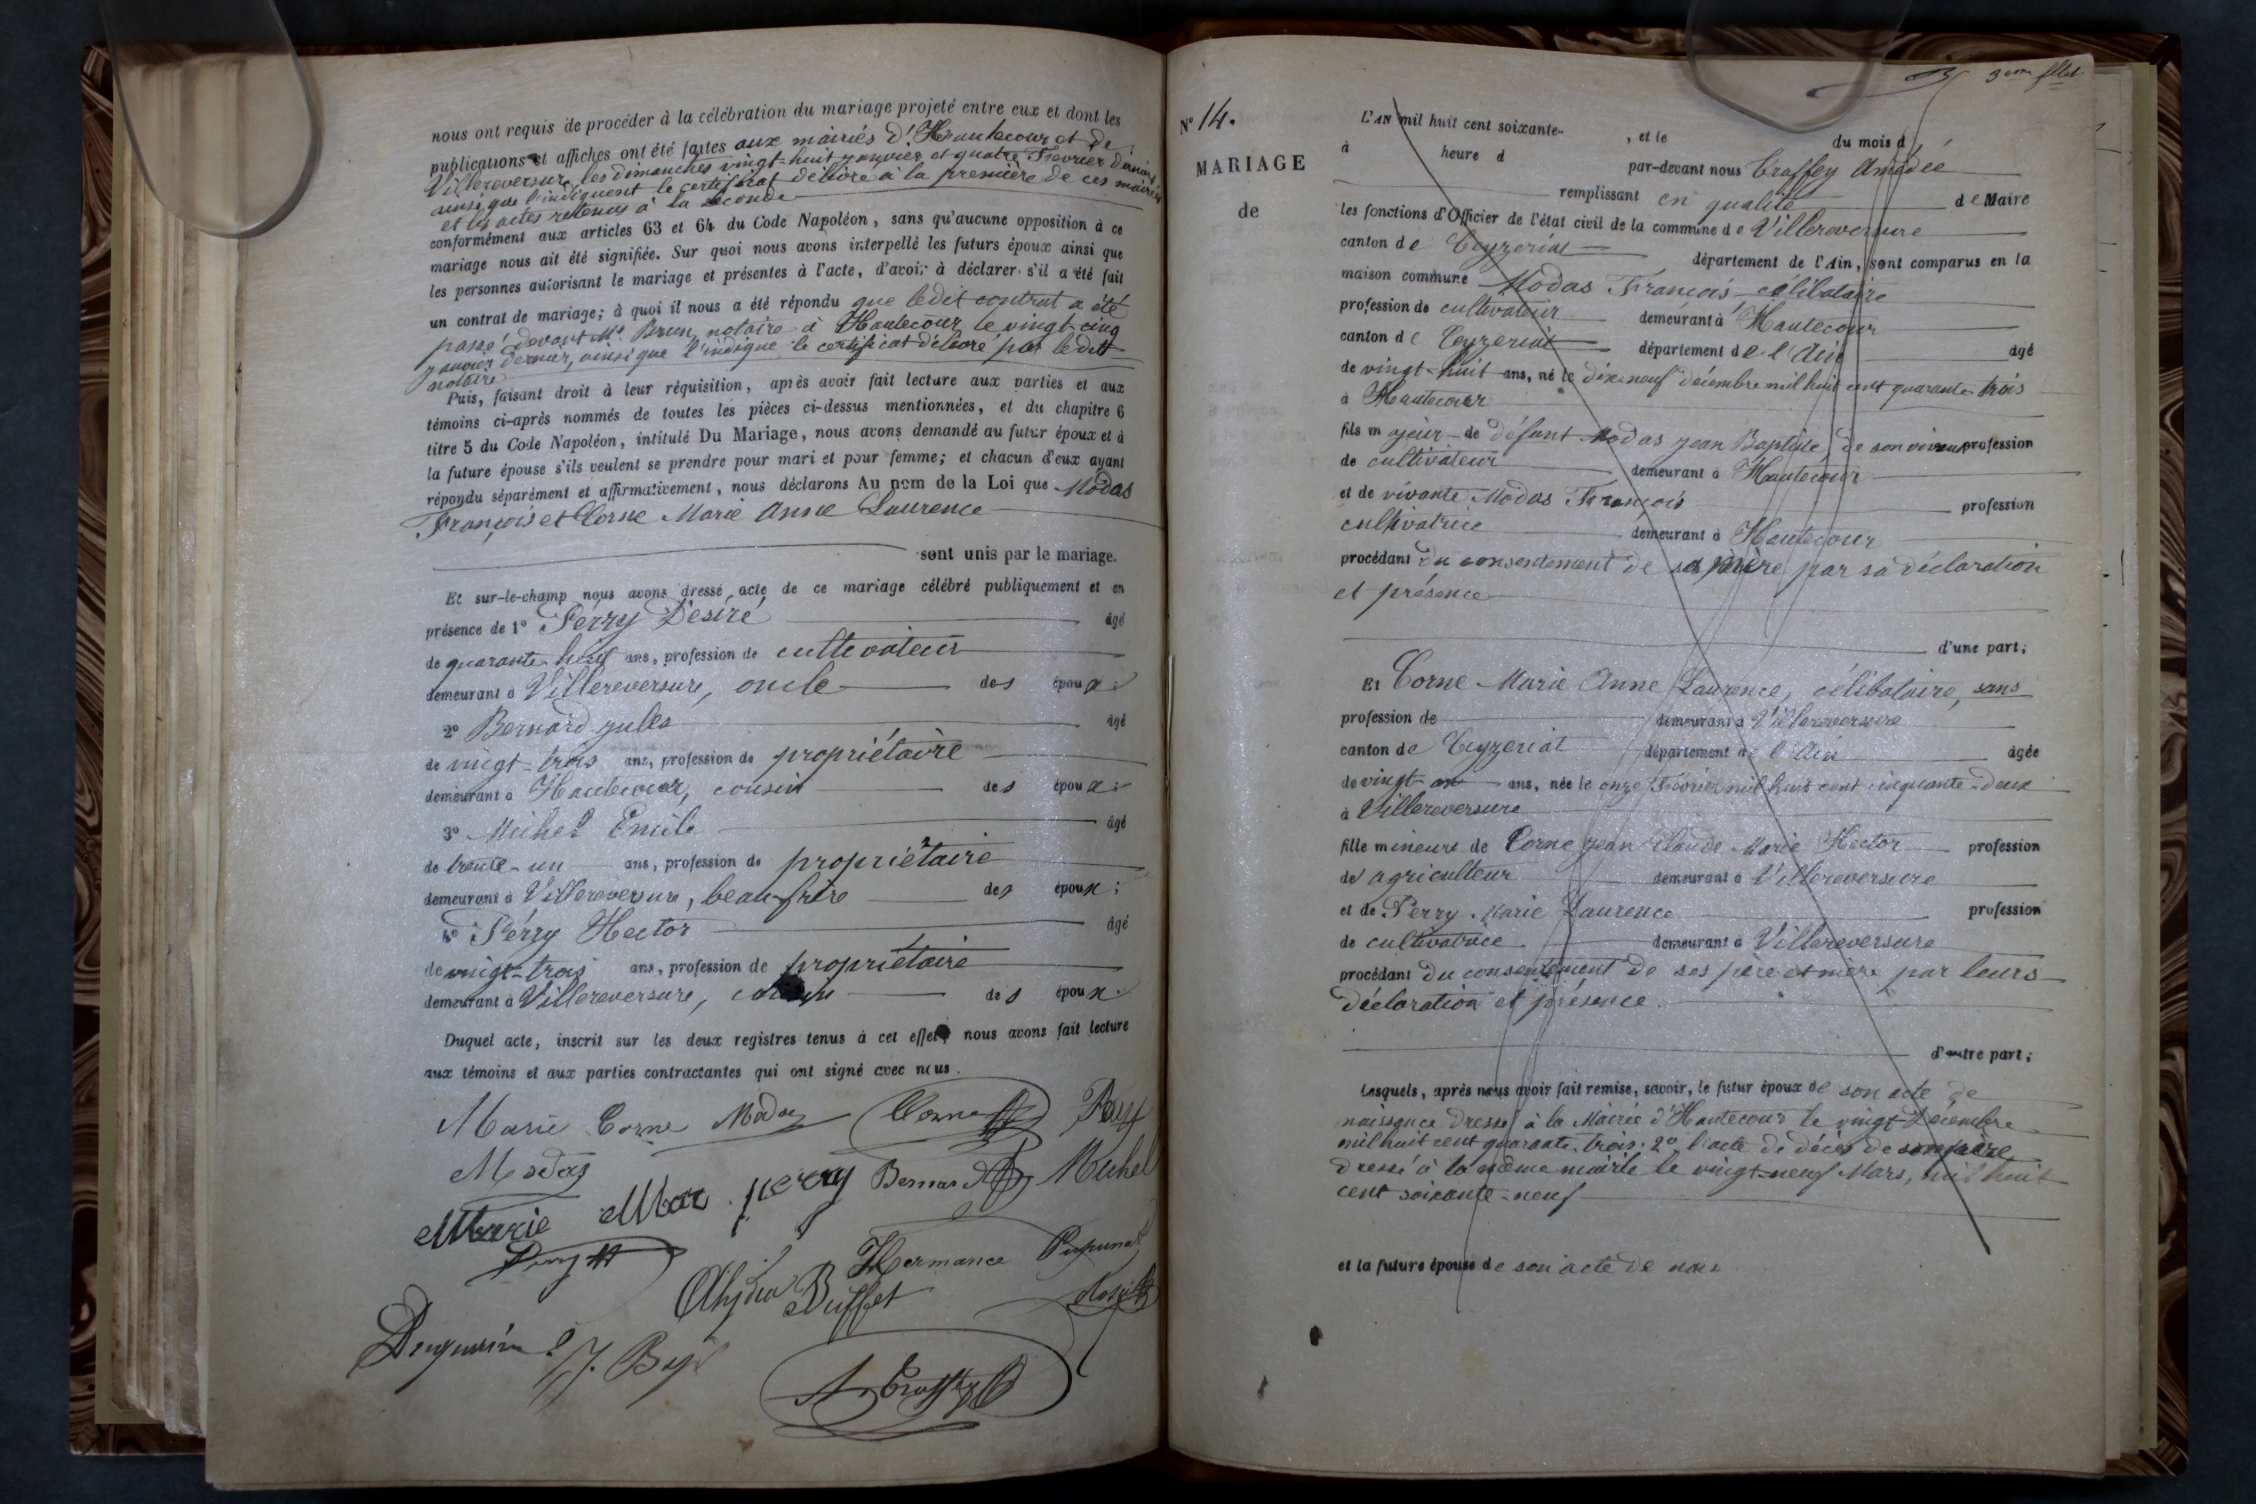 nous ont requis de procéder à la célébration du mariage projeté entre eux et dont les
publications et affiches ont été faites aux mairiés d'Hautecour et de
Villereversure, les dimanches vingt-huit janvier et quatre Février dernier
ainsi que l'indiquent le certificat délivré à la première de ces mairies
et les actes retenus à la seconde
conformément aux articles 63 et 64 du Code Napoléon, sans qu'aucune opposition à ce
mariage nous ait été signifiée. Sur quoi nous avons interpellé les futurs époux ainsi que
les personnes autorisant le mariage et présentes à l'acte, d'avoir à déclarer s'il a été fait
un contrat de mariage; à quoi il nous a été répondu que ledit contrat a été
passé devant Me Brun, notaire à Hautecour le vingt-cinq
janvier dernier, ainsi que l'indique le certificat délivré par ledit
notaire
Puis, faisant droit à leur réquisition, après avoir fait lecture aux parties et aux
témoins ci-après nommés de toutes les pièces ci-dessus mentionnées, et du chapitre 6
titre 5 du Code Napoléon, intitulé Du Mariage, nous avons demandé au futur époux et à
la future épouse s'ils veulent se prendre pour mari et pour femme; et chacun d'eux ayant
répondu séparément et affirmativement, nous déclarons Au nom de la Loi que Modas
François et Corne Marie Anne Laurence
sont unis par le mariage.
Et sur-le-champ nous avons dressé acte de ce mariage célébré publiquement et en
présence de 1° Perry Désiré âgé
de quarante-huit ans, profession de cultivateur
demeurant à Villereversure, oncle des époux;
2° Bernard Jules âgé
de vingt-trois ans, profession de propriétaire
demeurant à Hautecour, cousin des époux;
3° Michel Emile âgé
de trente-un ans, profession de propriétaire
demeurant à Villereversure, beau-frère des époux;
4° Pérry Hector âgé
de vingt-trois ans, profession de propriétaire
demeurant à Villereversure, cousin des époux.
Duquel acte, inscrit sur les deux registres tenus à cet effet, nous avons fait lecture
aux témoins et aux parties contractantes qui ont signé avec nous.
Marie Corne Modas Corne Perry
Modas
Marie perry Bernard Michel
Perry H
Hermance
Buffet
J.
A. Traffey
3eme fllet
N° 14.
MARIAGE
de
L'AN mil huit cent soixante- , et le du mois d
à heure d par-devant nous Traffey Amédée
remplissant en qualité de Maire
les fonctions d'Officier de l'état civil de la commune de Villereversure
canton de Ceyzeriat département de l'Ain, sont comparus en la
maison commune Modas François célibataire
profession de cultivateur demeurant à Hautecour
canton de Ceyzeriat département de l'Ain âgé
de vingt-huit ans, né le dix neuf décembre mil huit cent quarante-trois
à Hautecour
fils majeur de défunt Modas Jean Baptiste, de son vivant profession
de cultivateur demeurant à Hautecour
et de vivante Modas François profession
cultivatrice demeurant à Hautecour
procédant du consentement de sa mère par sa déclaration
et présence
d'une part;
Et Corne Marie Anne Laurence, célibataire, sans
profession de demeurant à Villereversure
canton de Ceyzeriat département de l'Ain âgée
de vingt ans, née le onze Février mil huit cent cinquante-deux
à Villereversure
fille mineure de Corne Jean Claude Marie Hector profession
de agriculteur demeurant à Villereversure
et de Perry Marie Laurence profession
de cultivatrice demeurant à Villereversure
procédant du consentement de ses père et mère par leurs
déclaration et présence
d'autre part;
Lesquels, après nous avoir fait remise, savoir, le futur époux de son acte de
naissance dressé à la Mairie d'Hautecour le vingt Décembre
mil huit cent quarante-trois; 2° l'acte de décès de son père
dressé à la même mairie le vingt-neuf Mars, mil huit
cent soixante-neuf
et la future épouse de son acte de nais